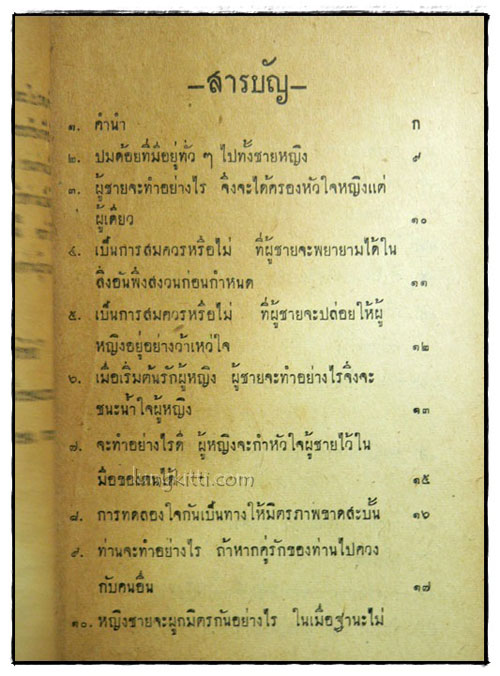 –สารบัญ–
๑. คำนำ ก
๒. ปมด้อยที่มีอยู่ทั่ว ๆ ไปทั้งชายหญิง ๙
๓. ผู้ชายจะทำอย่างไร จึงจะได้ครองหัวใจหญิงแต่
ผู้เดียว ๑๐
๔. เป็นการสมควรหรือไม่ ที่ผู้ชายจะพยายามได้ใน
สิ่งอันพึงสงวนก่อนกำหนด ๑๑
๕. เป็นการสมควรหรือไม่ ที่ผู้ชายจะปล่อยให้ผู้
หญิงอยู่อย่างว้าเหว่ใจ ๑๒
๖. เมื่อเริ่มต้นรักผู้หญิง ผู้ชายจะทำอย่างไรจึงจะ
ชนะน้ำใจผู้หญิง ๑๓
๗. จะทำอย่างไรดี ผู้หญิงจะกำหัวใจผู้ชายไว้ใน
มือของตนได้ ๑๕
๘. การทดลองใจกันเป็นทางให้มิตรภาพขาดสะบั้น ๑๖
๙. ท่านจะทำอย่างไร ถ้าหากคู่รักของท่านไปควง
กับคนอื่น ๑๗
๑๐. หญิงชายจะผูกมิตรกันอย่างไร ในเมื่อฐานะไม่